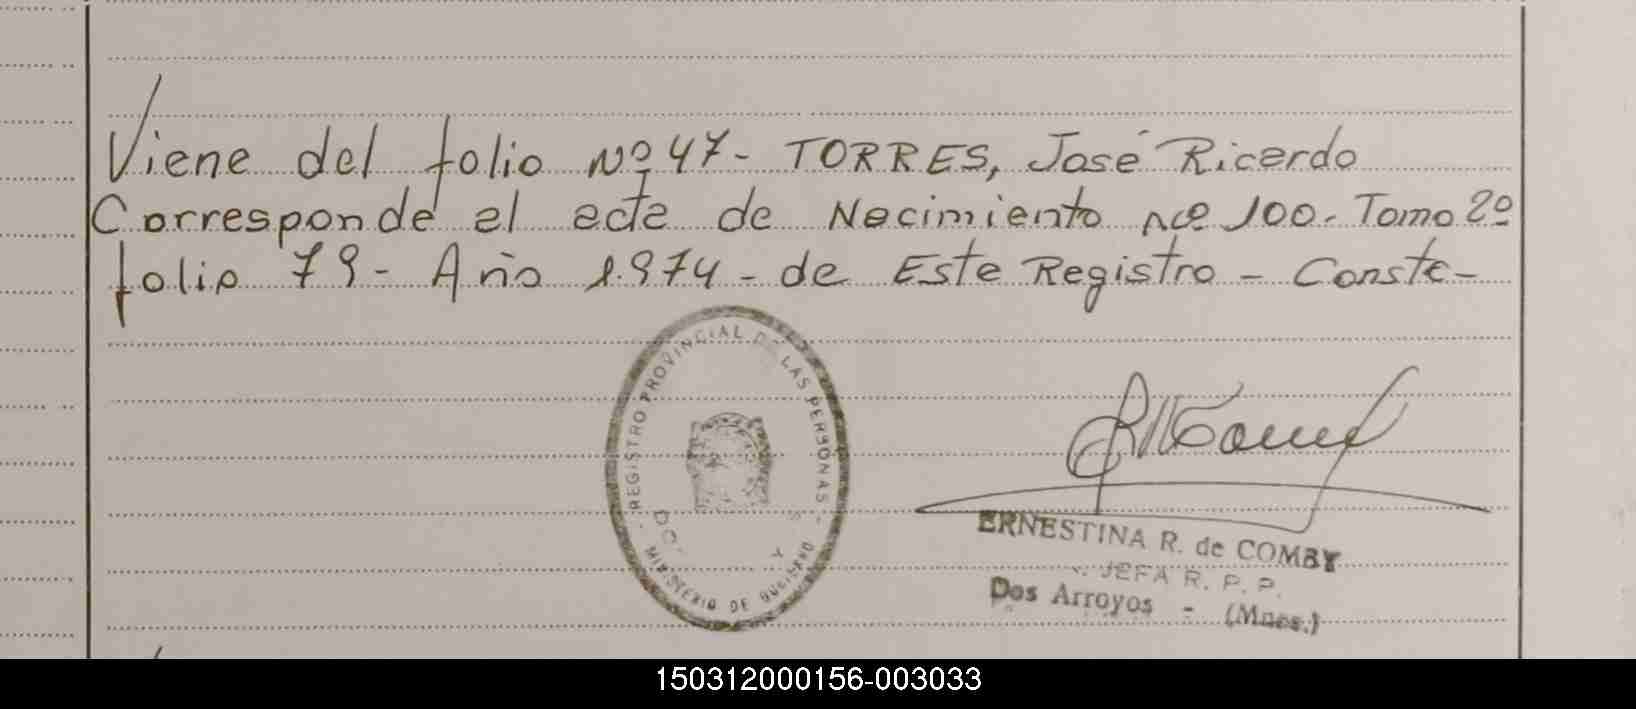 Viene del folio Nº 47- TORRES, José Ricardo
Corresponde al acta de Nacimiento nº 100. Tomo 2º
folio 79- Año 1.974- de Este Registro - Conste-
- REGISTRO PROVINCIAL DE LAS PERSONAS -
MINISTERIO DE GOBIERNO
ERNESTINA R. de COMBY
JEFA R. P. P.
Dos Arroyos - (Mnes.)
150312000156-003033